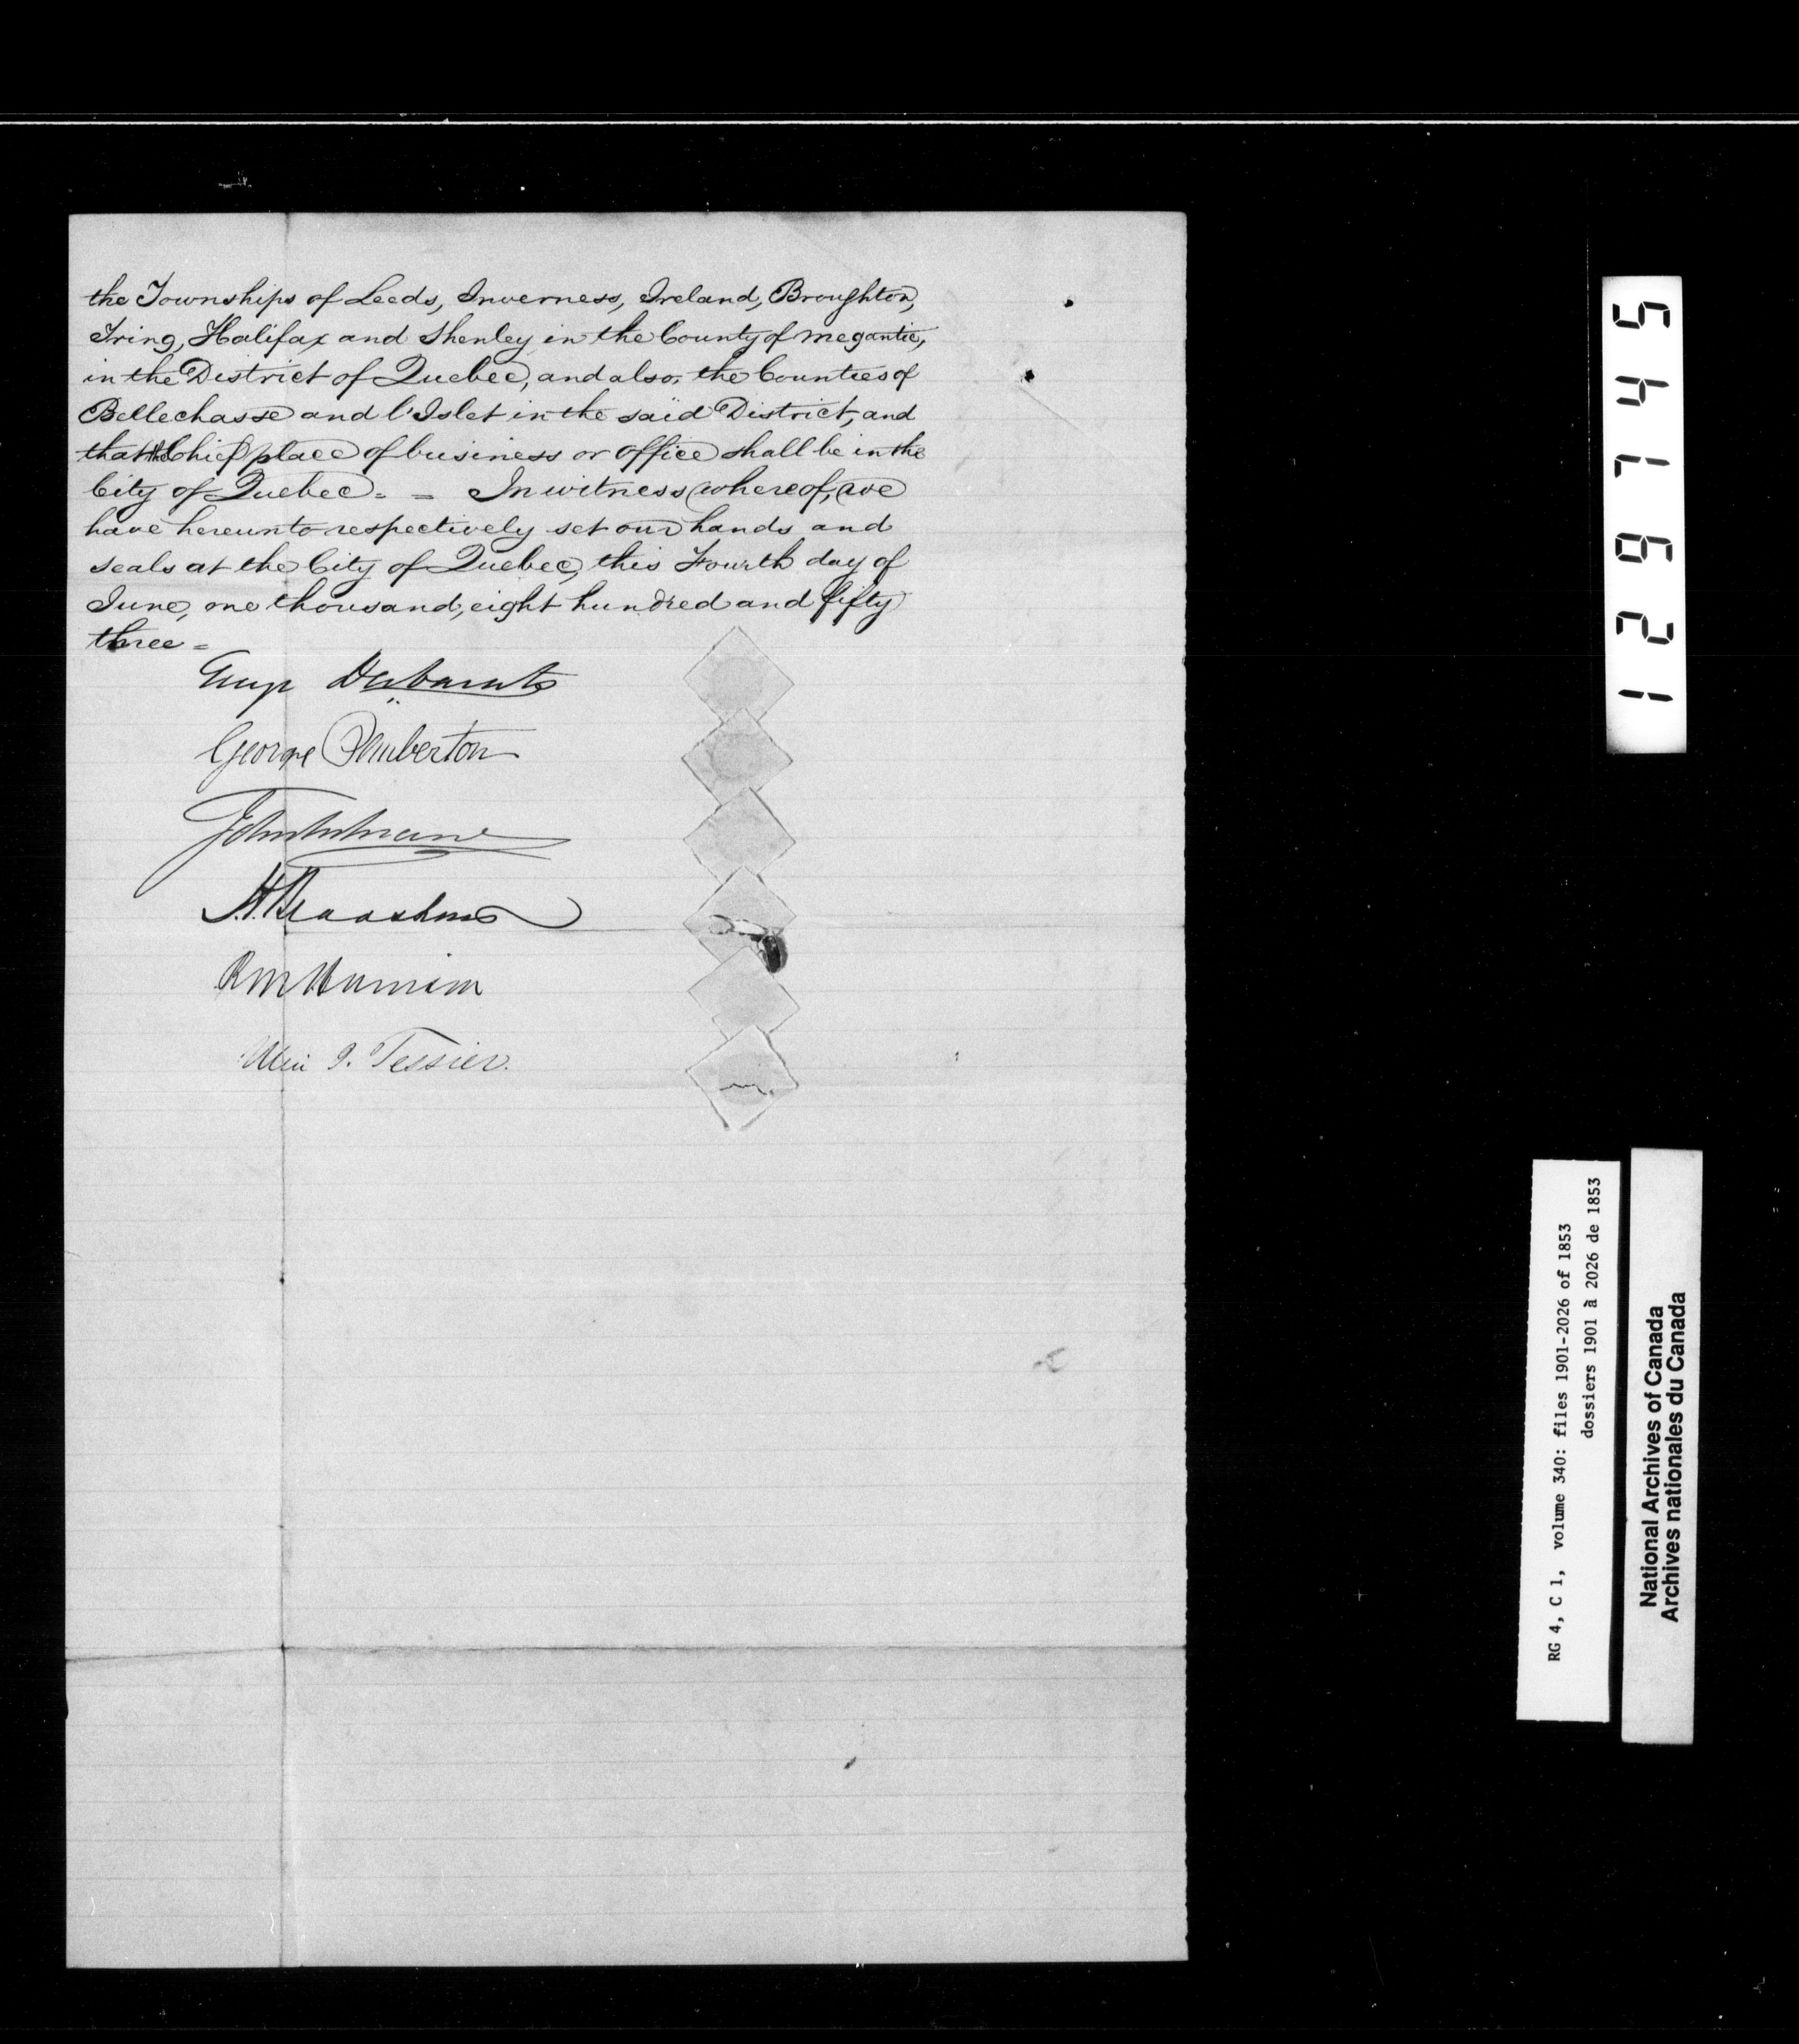 the Townships of Leeds, Inverness, Ireland, Broughton,
Tring, Halifax and Shenley in the County of Megantic,
in the District of Quebec, and also, the Counties of
Bellechasse and l'Islet in the said District, and
that the Chief place of business or office shall be in the
City of Quebec. = In witness whereof, we
have hereunto respectively set our hands and
seals at the City of Quebec, this Fourth day of
June, one thousand, eight hundred and fifty
three =
George Desbarats
George Pemberton
John
R M Harrison
Ulric J. Tessier.
129745
RG 4, C 1, volume 340: files 1901-2026 of 1853
dossiers 1901 à 2026 de 1853
National Archives of Canada
Archives nationales du Canada